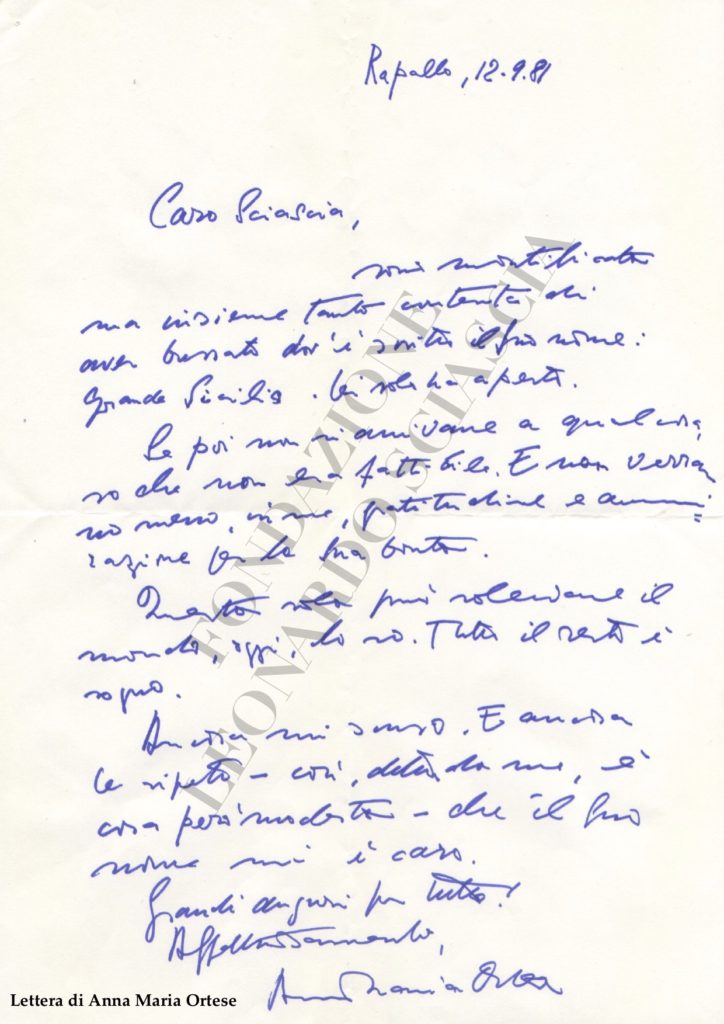 Rapallo, 12.9.81
Caro Sciascia,
sono mortificata
ma insieme tanto contenta di
aver bussato dov'è scritto il Suo nome:
grande Sicilia. Lei solo ha aperto.
Se poi non si arrivare a qualcosa,
so che non era fattibile. E non verran
no meno, in me, gratitudine e ammi=
razione per la Sua bontà.
Questa sola può salvare il
mondo, oggi, lo so. Tutto il resto è
sogno.
Ancora mi scuso. E ancora
Le ripeto – così, detta da me, è
cosa però modesta – che il Suo
nome mi è caro.
Grandi auguri per tutto!
Affettuosamente,
Anna Maria Ortese
FONDAZIONE
LEONARDO SCIASCIA
Lettera di Anna Maria Ortese